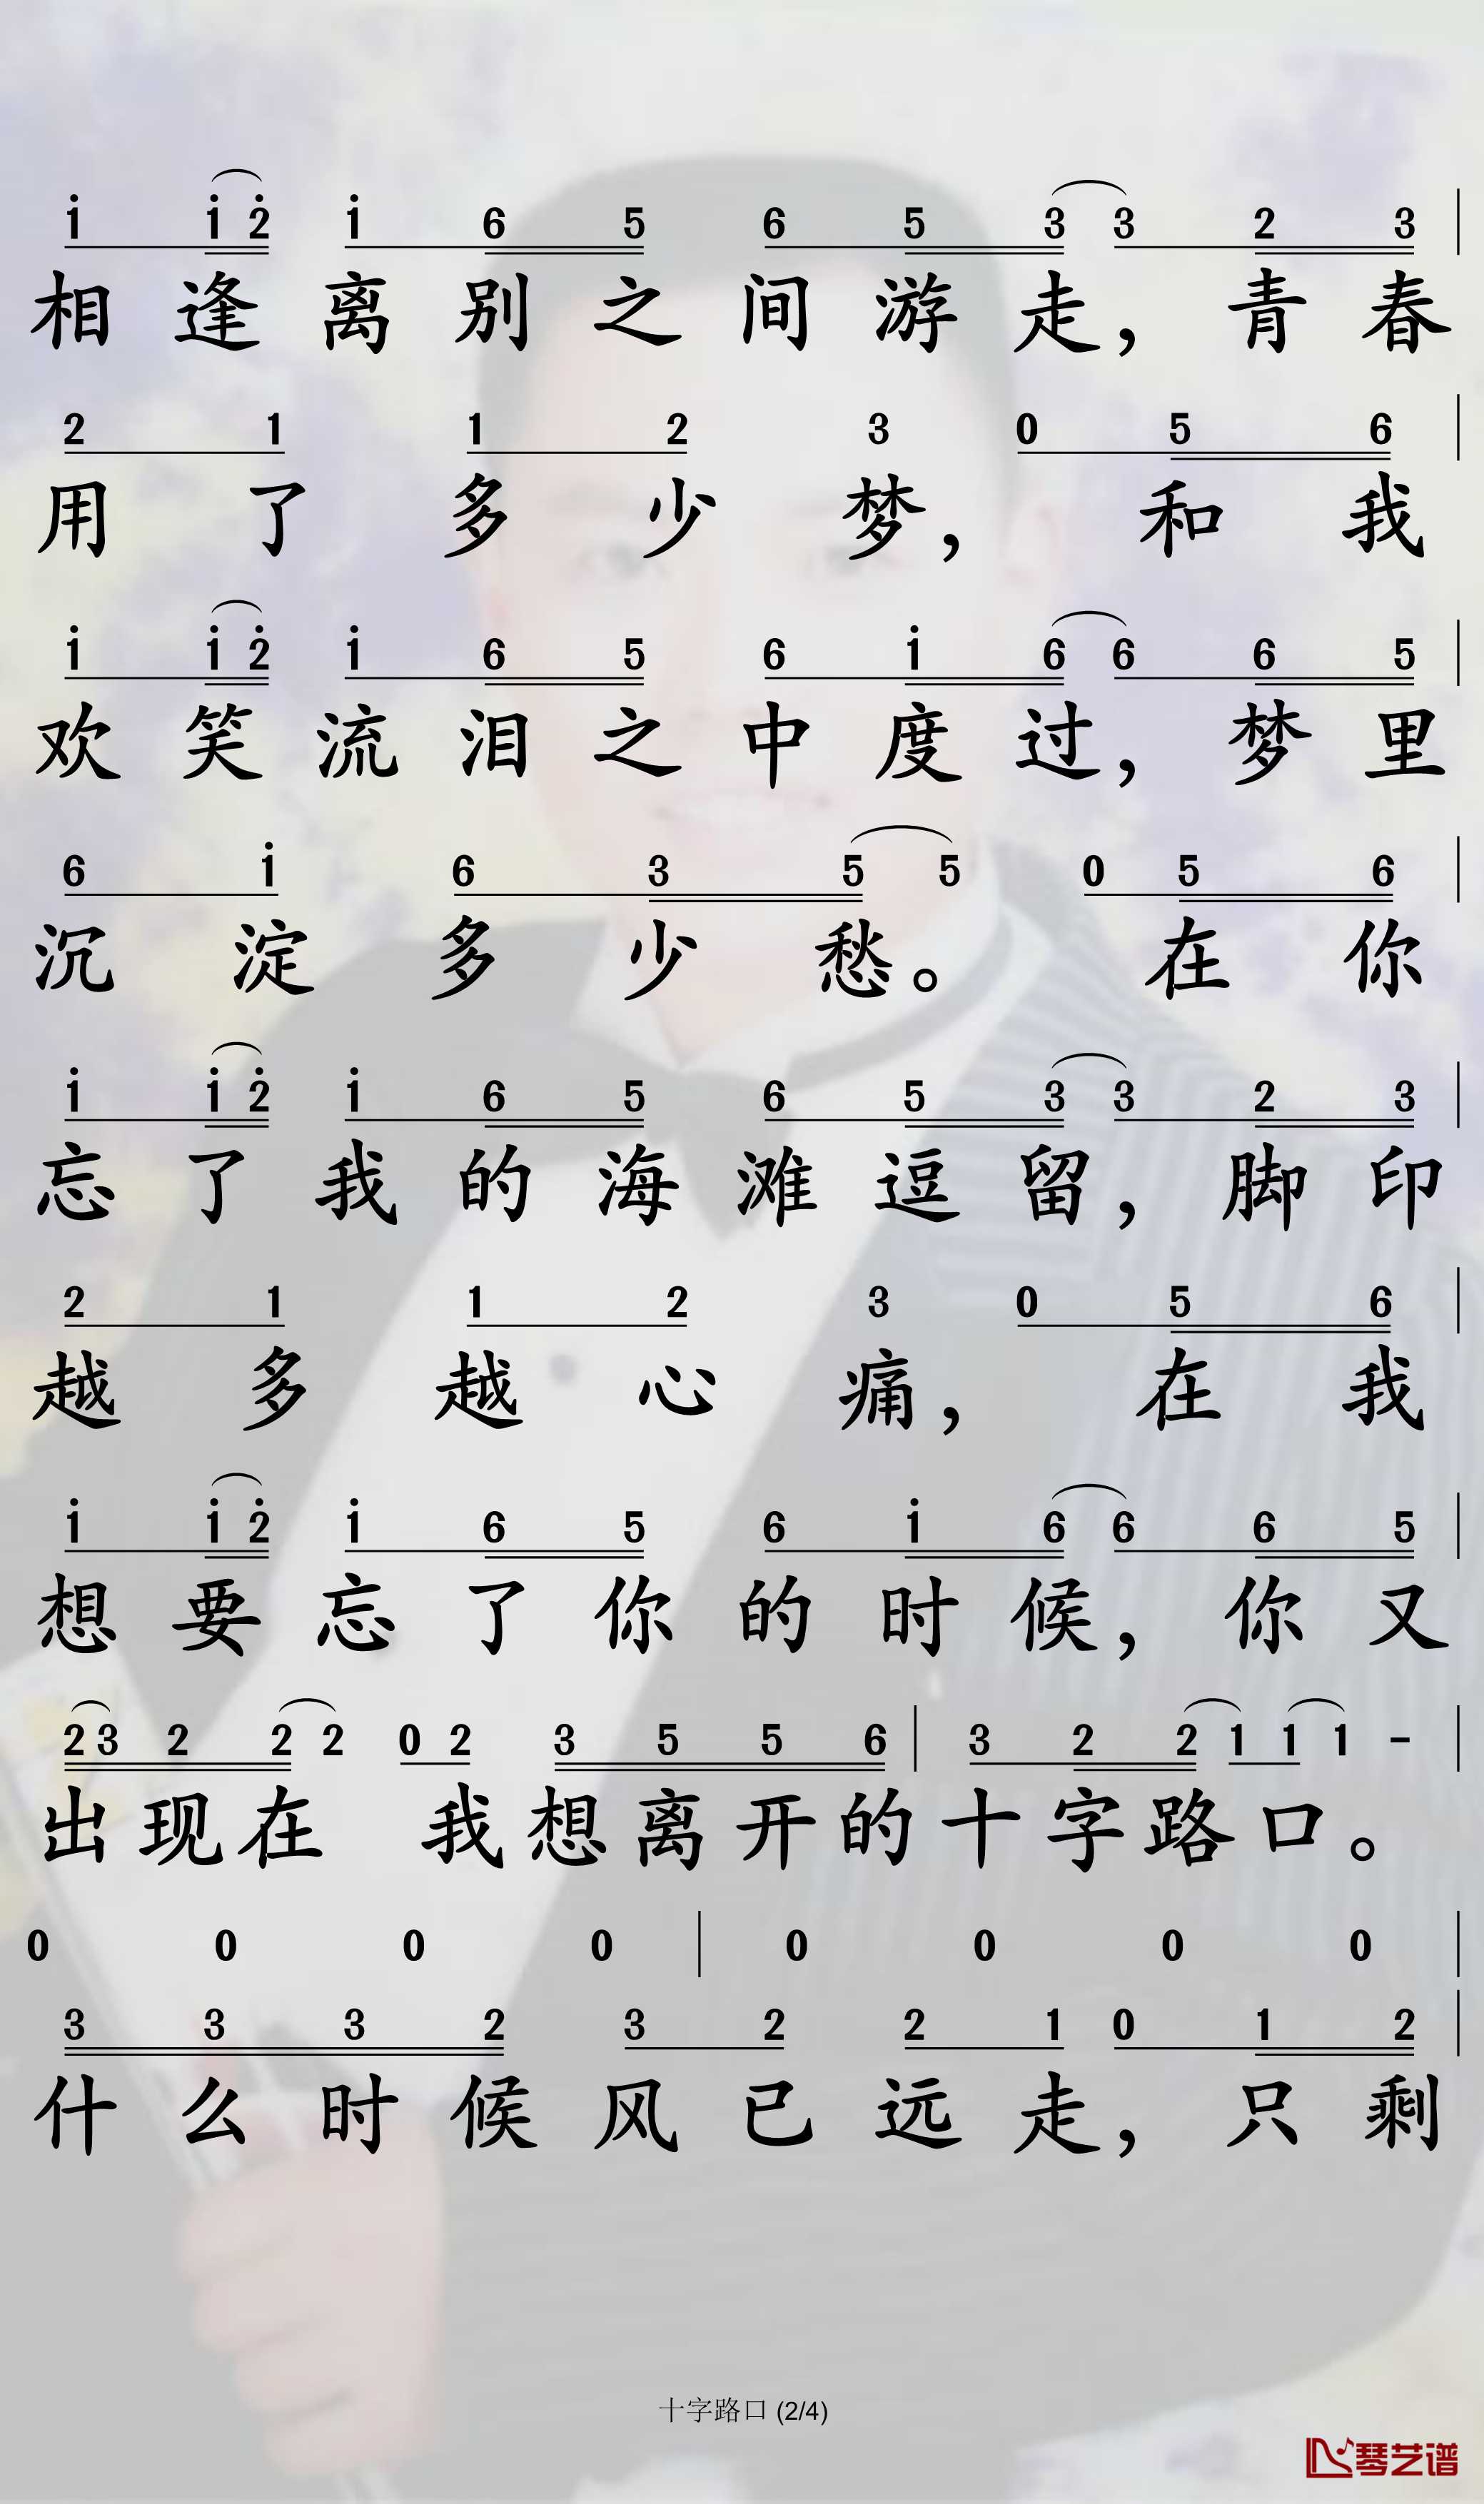 i i 2 i 6 5 6 5 3 3 2 3
相逢离别之间游走，青春
2 1 1 2 3 0 5 6
用了多少梦，和我
i i 2 i 6 5 6 i 6 6 6 5
欢笑流泪之中度过，梦里
6 i 6 3 5 5 0 5 6
沉淀多少愁。在你
i i 2 i 6 5 6 5 3 3 2 3
忘了我的海滩逗留，脚印
2 1 1 2 3 0 5 6
越多越心痛，在我
i i 2 i 6 5 6 i 6 6 6 5
想要忘了你的时候，你又
2 3 2 2 2 0 2 3 5 5 6 | 3 2 2 1 1 1 -
出现在 我想离开的十字路口。
0 0 0 0 | 0 0 0 0
3 3 3 2 3 2 2 1 0 1 2
什么时候风已远走，只剩
十字路口 (2/4)
琴艺谱